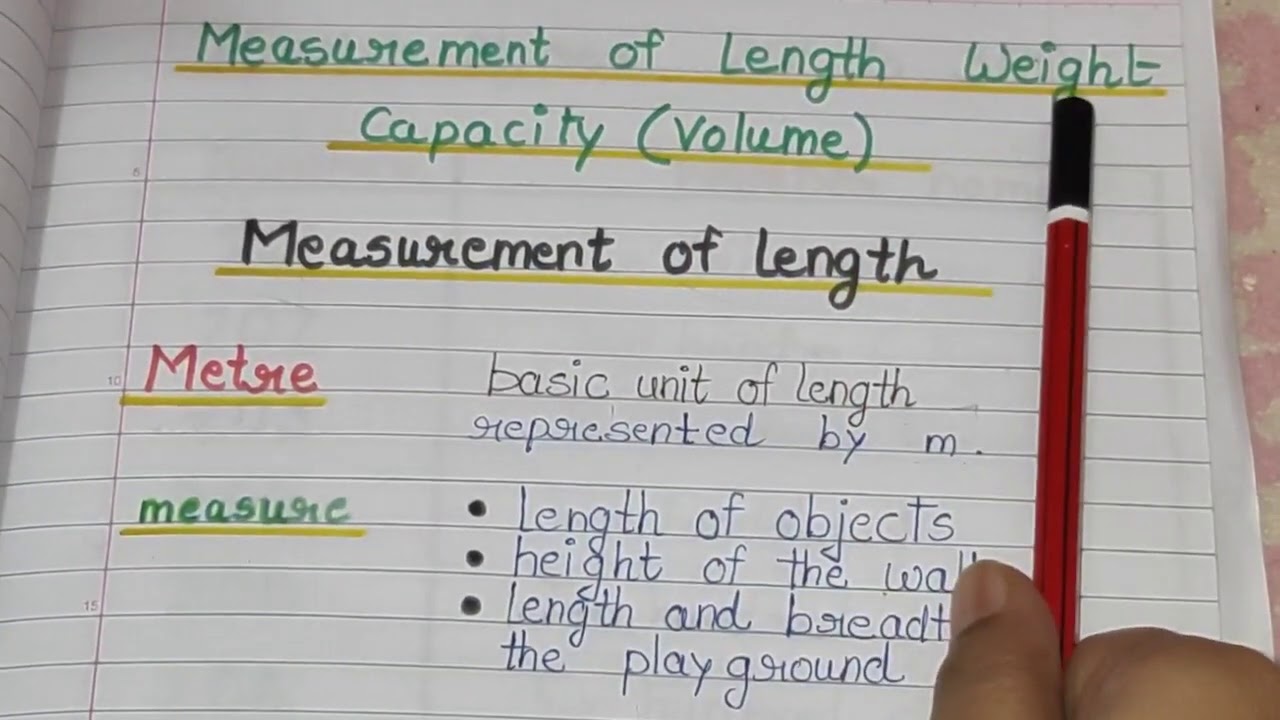 Measurement of Length Weight
Capacity (Volume)
5
Measurement of length
10 Metre basic unit of length
represented by m.
measure • length of objects
• height of the wall
15 • length and breadt
the playground